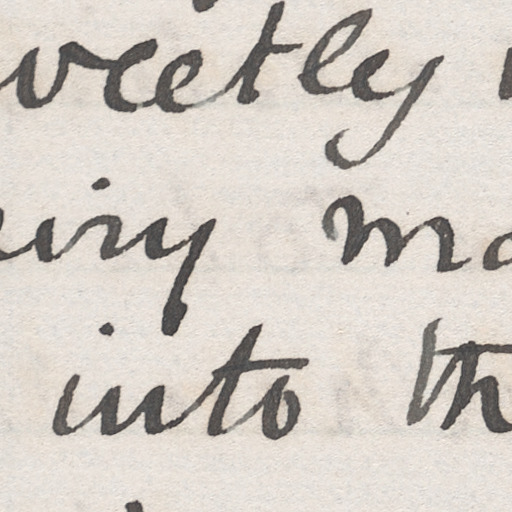 weetly
airy ma
into th